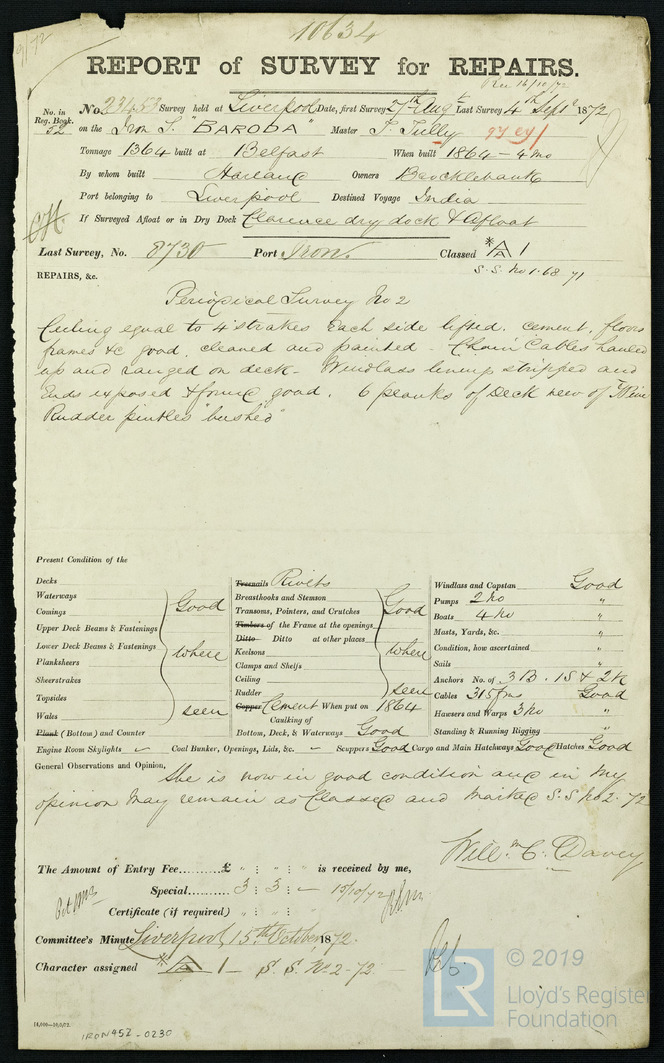 10634
9/72
REPORT of SURVEY for REPAIRS.
Rec 16/10/72
No. in Reg. Book. 52 No. 23453 Survey held at Liverpool Date, first Survey 27th Augt Last Survey 4th Septr 1872
on the Iron S. "BARODA" Master J. Tully
Tonnage 1364 built at Belfast When built 1864 - 4 mo
By whom built Harland Owners Brocklebank
Port belonging to Liverpool Destined Voyage India
If Surveyed Afloat or in Dry Dock Clarence dry dock & Afloat
Last Survey, No. 8730 Port Iron. Classed *A 1
S.S. No 1-68 71
REPAIRS, &c.
Periodical Survey No 2
Ceiling equal to 4 strakes each side lifted. cement, floors
frames &c good, cleaned and painted - Chain Cables hauled
up and ranged on deck - Windlass lining stripped and
Ends exposed & found good. 6 planks of Deck new of Y Pine
Rudder pintles "bushed"
Present Condition of the
Decks
Waterways
Comings
Upper Deck Beams & Fastenings
Lower Deck Beams & Fastenings
Planksheers
Sheerstrakes
Topsides
Wales
Good where seen
Plank (Bottom) and Counter
Treenails Rivets
Breasthooks and Stemson
Transoms, Pointers, and Crutches
Timbers of the Frame at the openings
Ditto Ditto at other places
Keelsons
Clamps and Shelfs
Ceiling
Rudder
Good where seen
Copper Cement When put on 1864
Caulking of
Bottom, Deck, & Waterways Good
Windlass and Capstan Good
Pumps 2 No "
Boats 4 No "
Masts, Yards, &c. "
Condition, how ascertained "
Sails "
Anchors No. of 3 B. 1 S & 2 K
Cables 315 fms Good
Hawsers and Warps 3 No "
Standing & Running Rigging "
Engine Room Skylights Coal Bunker, Openings, Lids, &c. Scuppers Good Cargo and Main Hatchways Good Hatches Good
General Observations and Opinion, She is now in good condition and in my
opinion may remain as Classed and marked S.S No 2-72
Willm C. Davey
The Amount of Entry Fee......... £ " : " : " is received by me,
Special...... 3 : 3 : - 10/10/72
Certificate (if required) " : " : "
Committee's Minute Liverpool 15th October, 1872.
Character assigned *A 1 - S.S. No 2-72 -
© 2019
LR
Lloyd's Register
Foundation
IRON452-0230